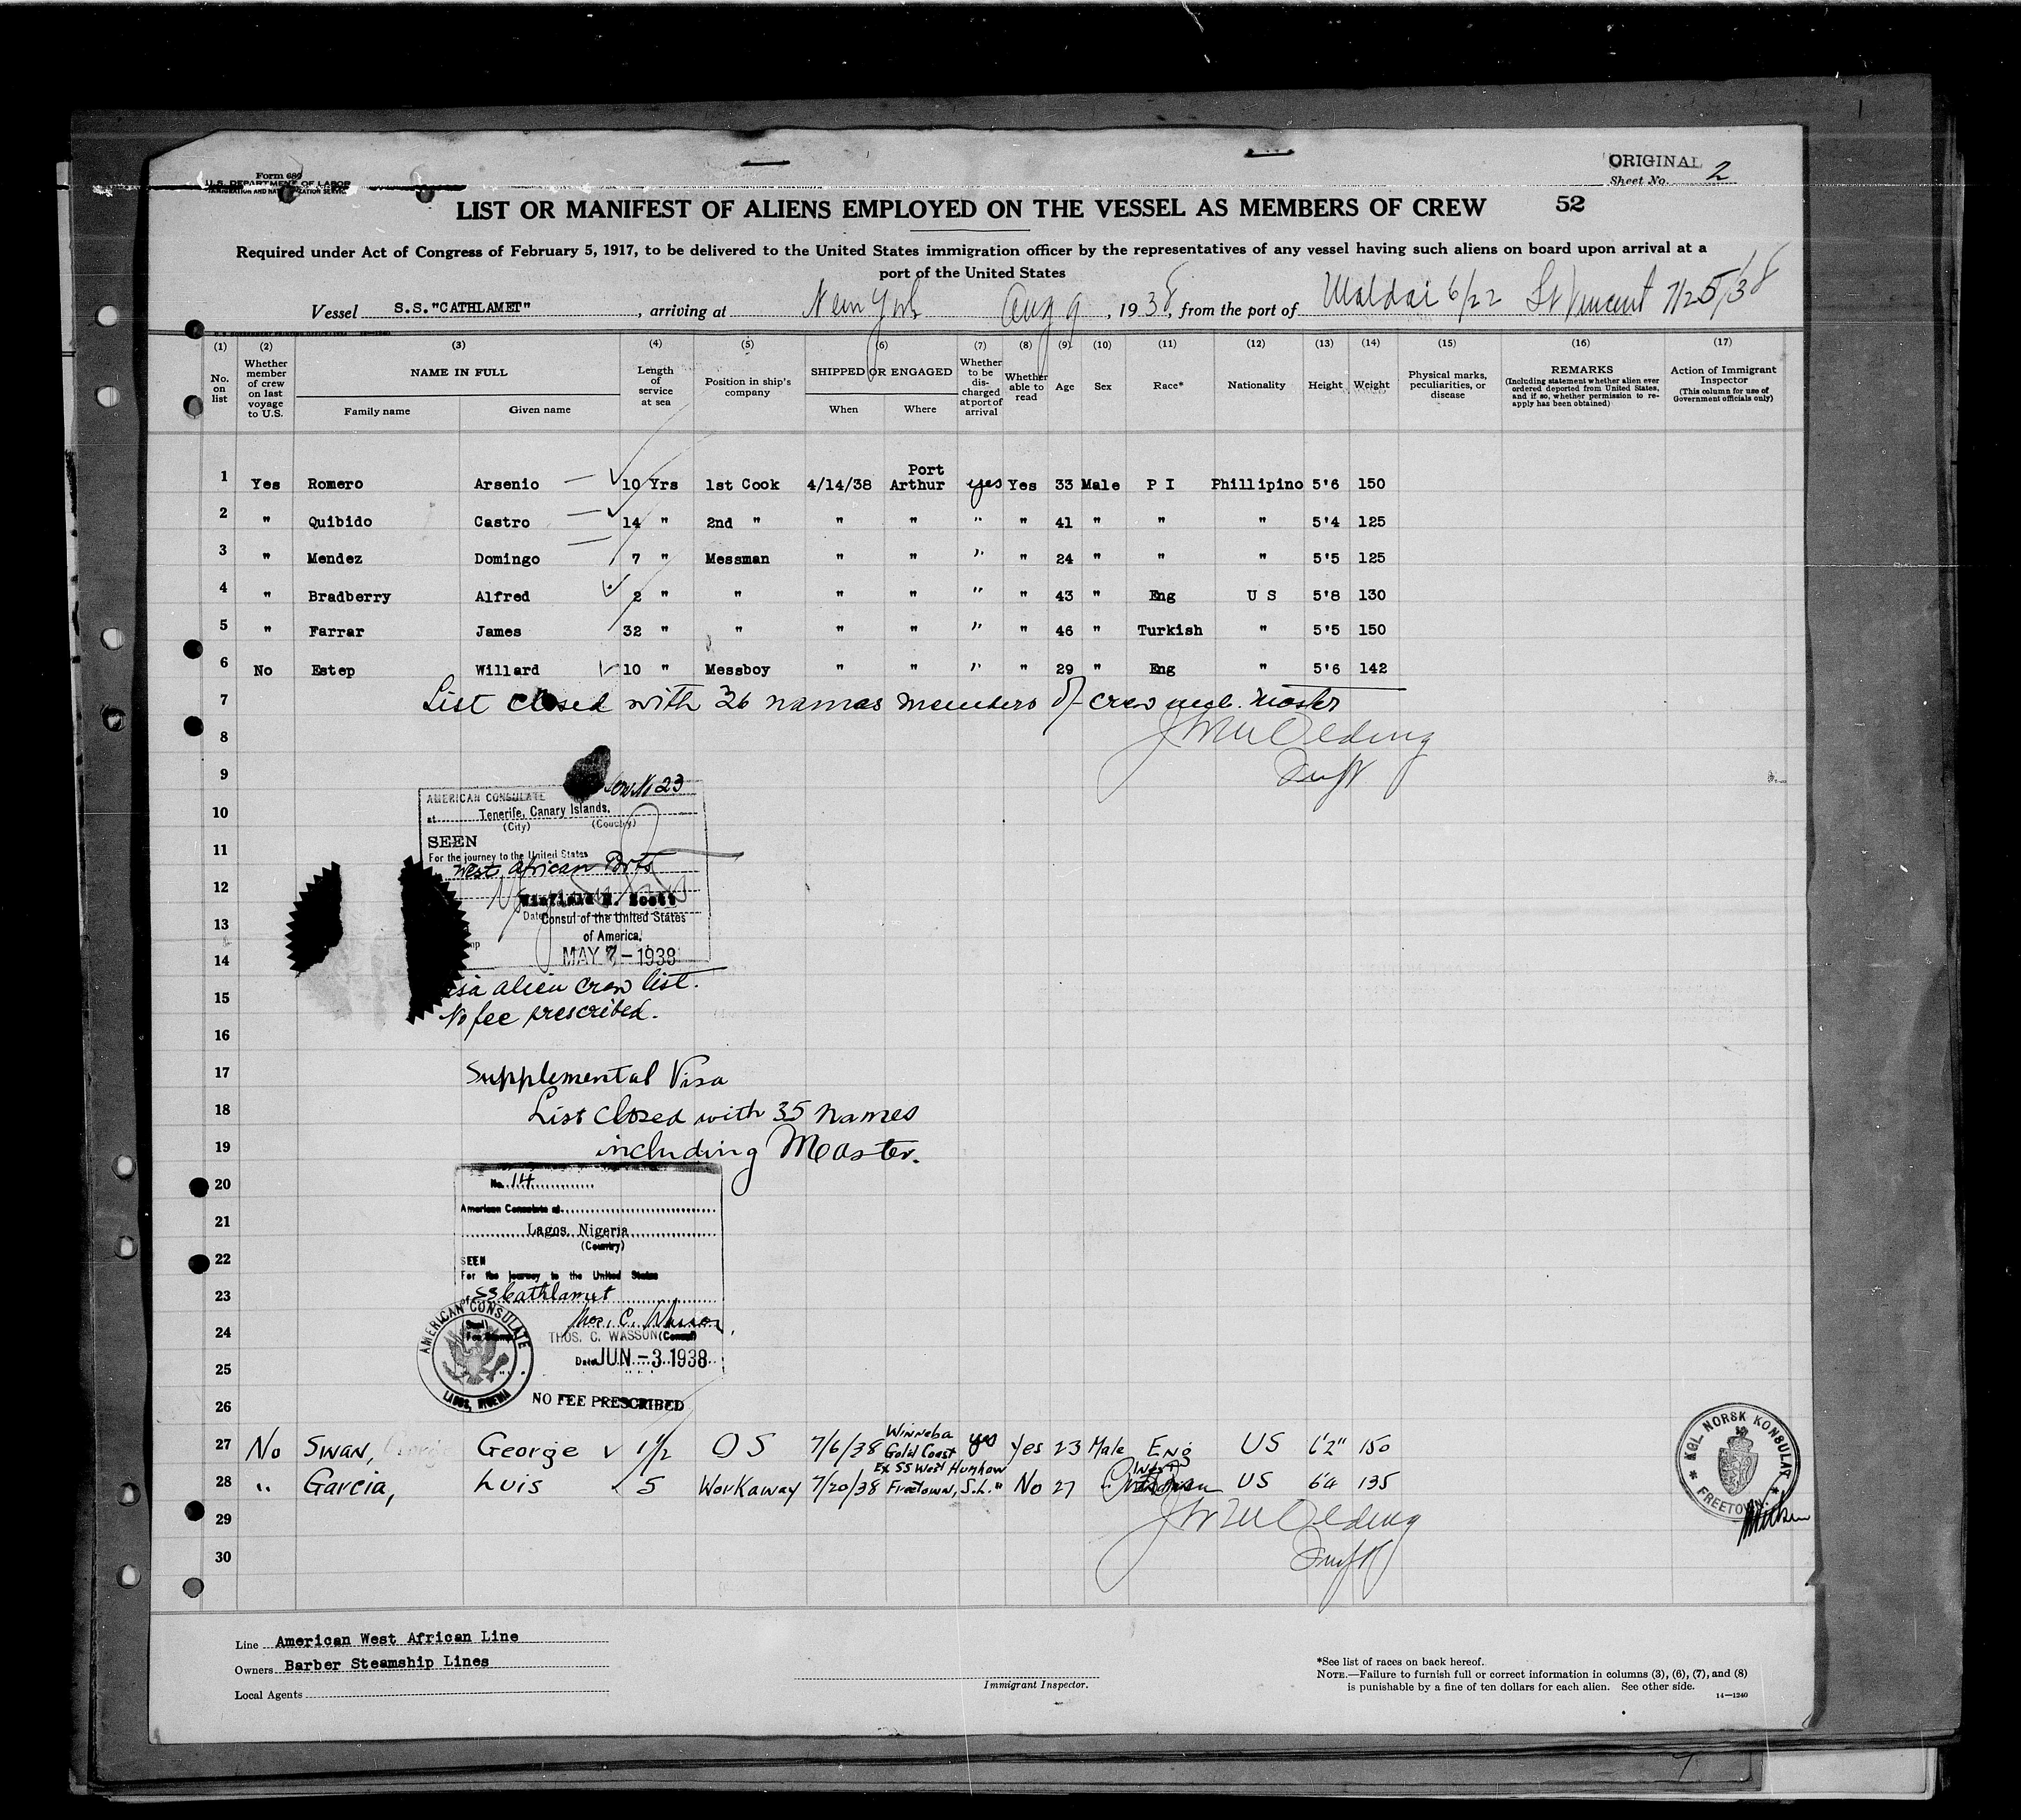 Form 689
U.S. DEPARTMENT OF LABOR
IMMIGRATION AND NATURALIZATION SERVICE
ORIGINAL
Sheet No. 2
LIST OR MANIFEST OF ALIENS EMPLOYED ON THE VESSEL AS MEMBERS OF CREW 52
Required under Act of Congress of February 5, 1917, to be delivered to the United States immigration officer by the representatives of any vessel having such aliens on board upon arrival at a
port of the United States
Vessel S.S."CATHLAMET", arriving at New York Aug 9, 1938, from the port of 6/22 St Vincent 7/25/38
(1) (2) (3) (4) (5) (6) (7) (8) (9) (10) (11) (12) (13) (14) (15) (16) (17)
No. on list
Whether member of crew on last voyage to U.S.
NAME IN FULL
Family name Given name
Length of service at sea
Position in ship's company
SHIPPED OR ENGAGED
When Where
Whether to be discharged at port of arrival
Whether able to read
Age
Sex
Race*
Nationality
Height
Weight
Physical marks, peculiarities, or disease
REMARKS
(Including statement whether alien ever ordered deported from United States, and if so, whether permission to re-apply has been obtained)
Action of Immigrant Inspector
(This column for use of Government officials only)
1 Yes Romero Arsenio 10 Yrs 1st Cook 4/14/38 Port Arthur yes Yes 33 Male P I Phillipino 5'6 150
2 " Quibido Castro 14 " 2nd " " " " " 41 " " " 5'4 125
3 " Mendez Domingo 7 " Messman " " " " 24 " " " 5'5 125
4 " Bradberry Alfred 2 " " " " " " 43 " Eng U S 5'8 130
5 " Farrar James 32 " " " " " " 46 " Turkish " 5'5 150
6 No Estep Willard 10 " Messboy " " " " 29 " Eng " 5'6 142
7 List closed with 36 names members of crew incl. master
8
9
No 23
AMERICAN CONSULATE
10 at Tenerife, Canary Islands.
(City) (Country)
SEEN
11 For the journey to the United States
West African Ports
12
Winfield H. Scott
13 Date Consul of the United States
of America.
14 MAY 7 - 1938
15 visa alien crew list.
No fee prescribed.
16
17 Supplemental Visa
18 List closed with 35 names
19 including Master.
20 No. 14
American Consulate at
21 Lagos, Nigeria
(Country)
22 SEEN
For the journey to the United States
23 of SS Cathlamet
Thos. C. Wasson
24 (Seal)
(Fee Stamp) THOS. C. WASSON (Consul)
AMERICAN CONSULATE
LAGOS, NIGERIA
25 Date JUN - 3 1938
26 NO FEE PRESCRIBED
27 No Swan, George 1½ OS 7/6/38 Winneba Gold Coast yes Yes 23 Male Eng US 6'2" 150
28 " Garcia, Luis 5 Workaway 7/20/38 Ex SS West Humhaw Freetown, S.L. " No 27 West US 6'4 135
29
30
KGL NORSK KONSULAT
FREETOWN
Line American West African Line
Owners Barber Steamship Lines
Local Agents
Immigrant Inspector.
*See list of races on back hereof.
NOTE.—Failure to furnish full or correct information in columns (3), (6), (7), and (8)
is punishable by a fine of ten dollars for each alien. See other side.
14—1240